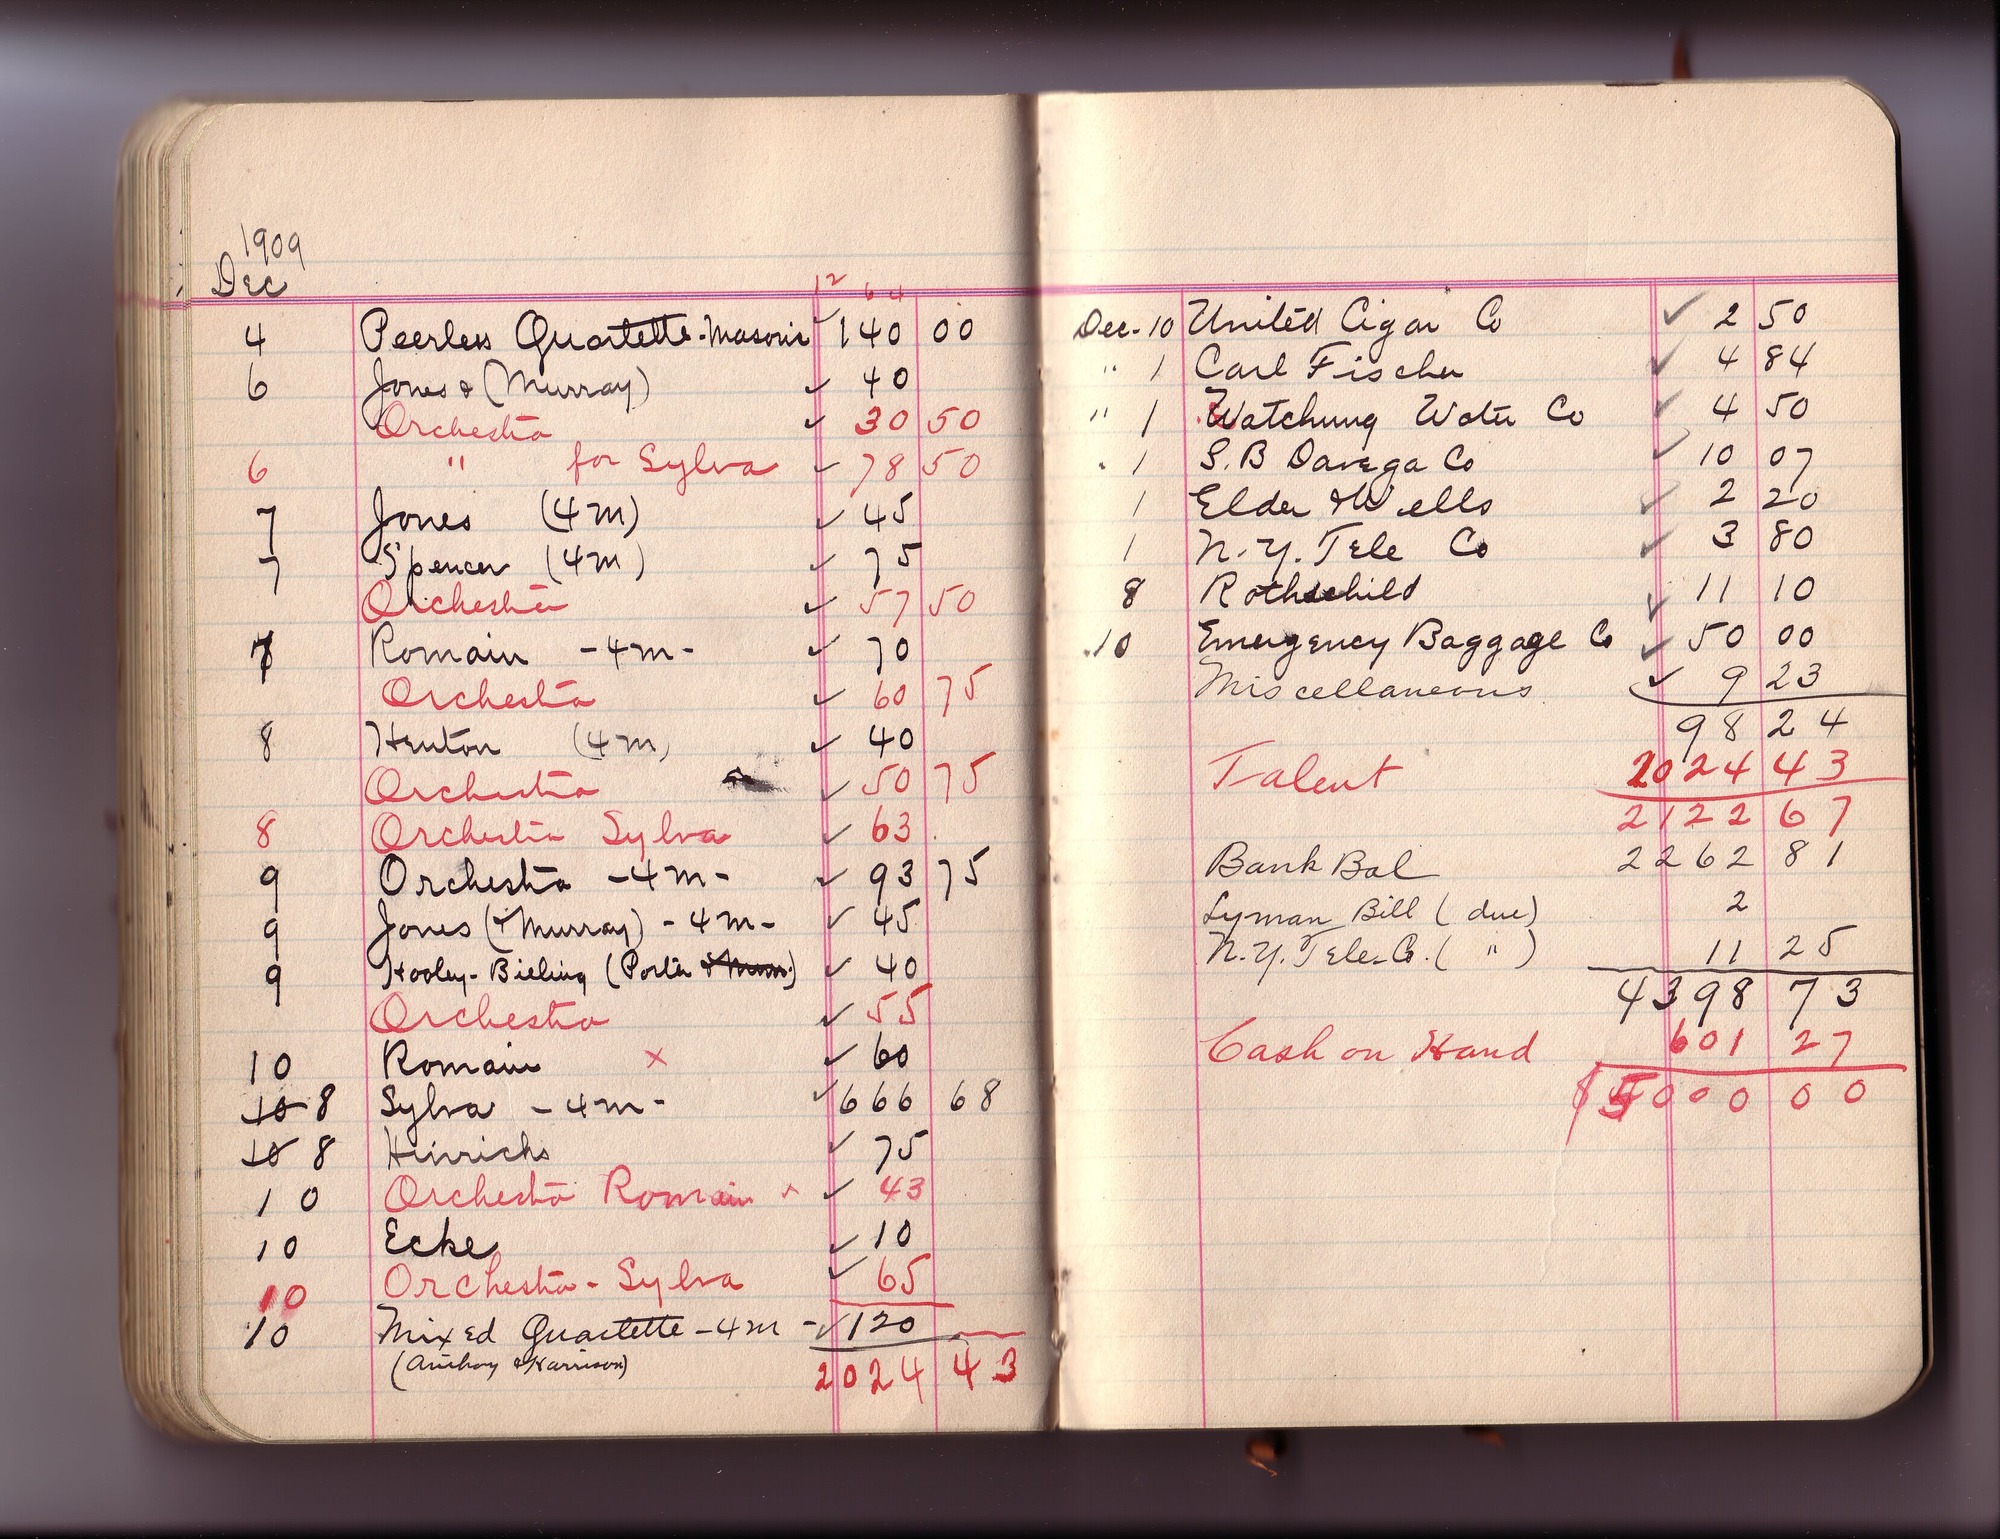 1909
Dec
12 64
4 Peerless Quartette-Masonic ✓ 140 00
6 Jones & (Murray) ✓ 40
Orchestra ✓ 30 50
6 " for Sylva ✓ 78 50
7 Jones (4m) ✓ 45
7 Spencer (4m) ✓ 75
Orchestra ✓ 57 50
7 Romain -4m- ✓ 70
Orchestra ✓ 60 75
8 Henton (4m) ✓ 40
Orchestra ✓ 50 75
8 Orchestra Sylva ✓ 63
9 Orchestra -4m- ✓ 93 75
9 Jones (+Murray) -4m- ✓ 45
9 Hooley-Bieling (Porter ✓ 40
Orchestra ✓ 55
10 Romain x ✓ 60
10 8 Sylva -4m- ✓ 666 68
10 8 Hinrichs ✓ 75
10 Orchestra Romain x ✓ 43
10 Ecke ✓ 10
10 Orchestra - Sylva ✓ 65
10 Mixed Quartette -4m - ✓ 120
(Anthony & Harrison)
2024 43
Dec-10 United Cigar Co ✓ 2 50
" 1 Carl Fischer ✓ 4 84
" 1 Watchung Water Co ✓ 4 50
" 1 S.B Davega Co ✓ 10 07
1 Elder & Wells ✓ 2 20
1 N.Y. Tele Co ✓ 3 80
8 Rothschild ✓ 11 10
10 Emergency Baggage Co ✓ 50 00
Miscellaneous ✓ 9 23
98 24
Talent 2024 43
2122 67
Bank Bal 2262 81
Lyman Bill (due) 2
N.Y. Tele. Co. ( " ) 11 25
4398 73
Cash on Hand 601 27
$5000 00